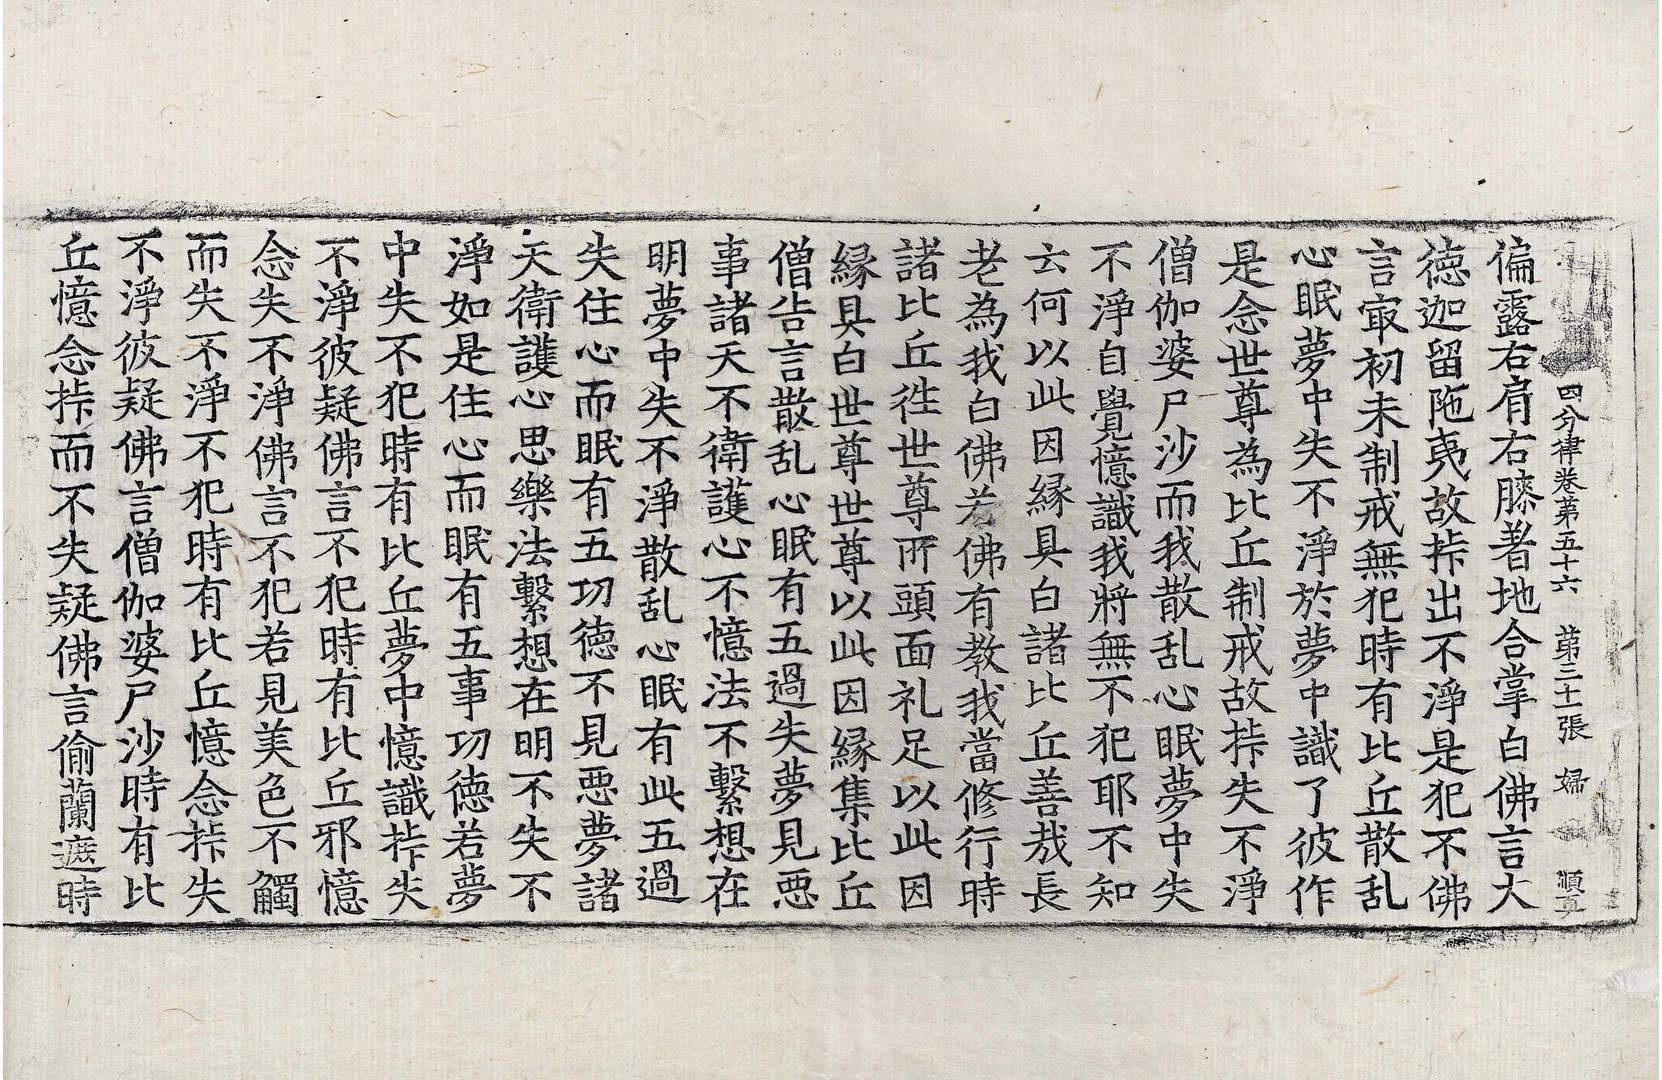 四分律卷第五十六 第三十一張 婦 順真
偏露右肩右膝著地合掌白佛言大
德迦留陁夷故𢮿出不淨是犯不佛
言㝡初未制戒無犯時有比丘散乱
心眠夢中失不淨於夢中識了彼作
是念世尊為比丘制戒故𢮿失不淨
僧伽婆尸沙而我散乱心眠夢中失
不淨自覺憶識我將無不犯耶不知
云何以此因縁具白諸比丘善㢤長
老為我白佛若佛有教我當修行時
諸比丘往世尊所頭面礼足以此因
縁具白世尊世尊以此因縁集比丘
僧告言散乱心眠有五過失夢見惡
事諸天不衛護心不憶法不繫想在
明夢中失不淨散乱心眠有此五過
失住心而眠有五功德不見惡夢諸
天衛護心思樂法繫想在明不失不
淨如是住心而眠有五事功德若夢
中失不犯時有比丘夢中憶識𢮿失
不淨彼疑佛言不犯時有比丘邪憶
念失不淨佛言不犯若見美色不觸
而失不淨不犯時有比丘憶念𢮿失
不淨彼疑佛言僧伽婆尸沙時有比
丘憶念𢮿而不失疑佛言偷蘭遮時